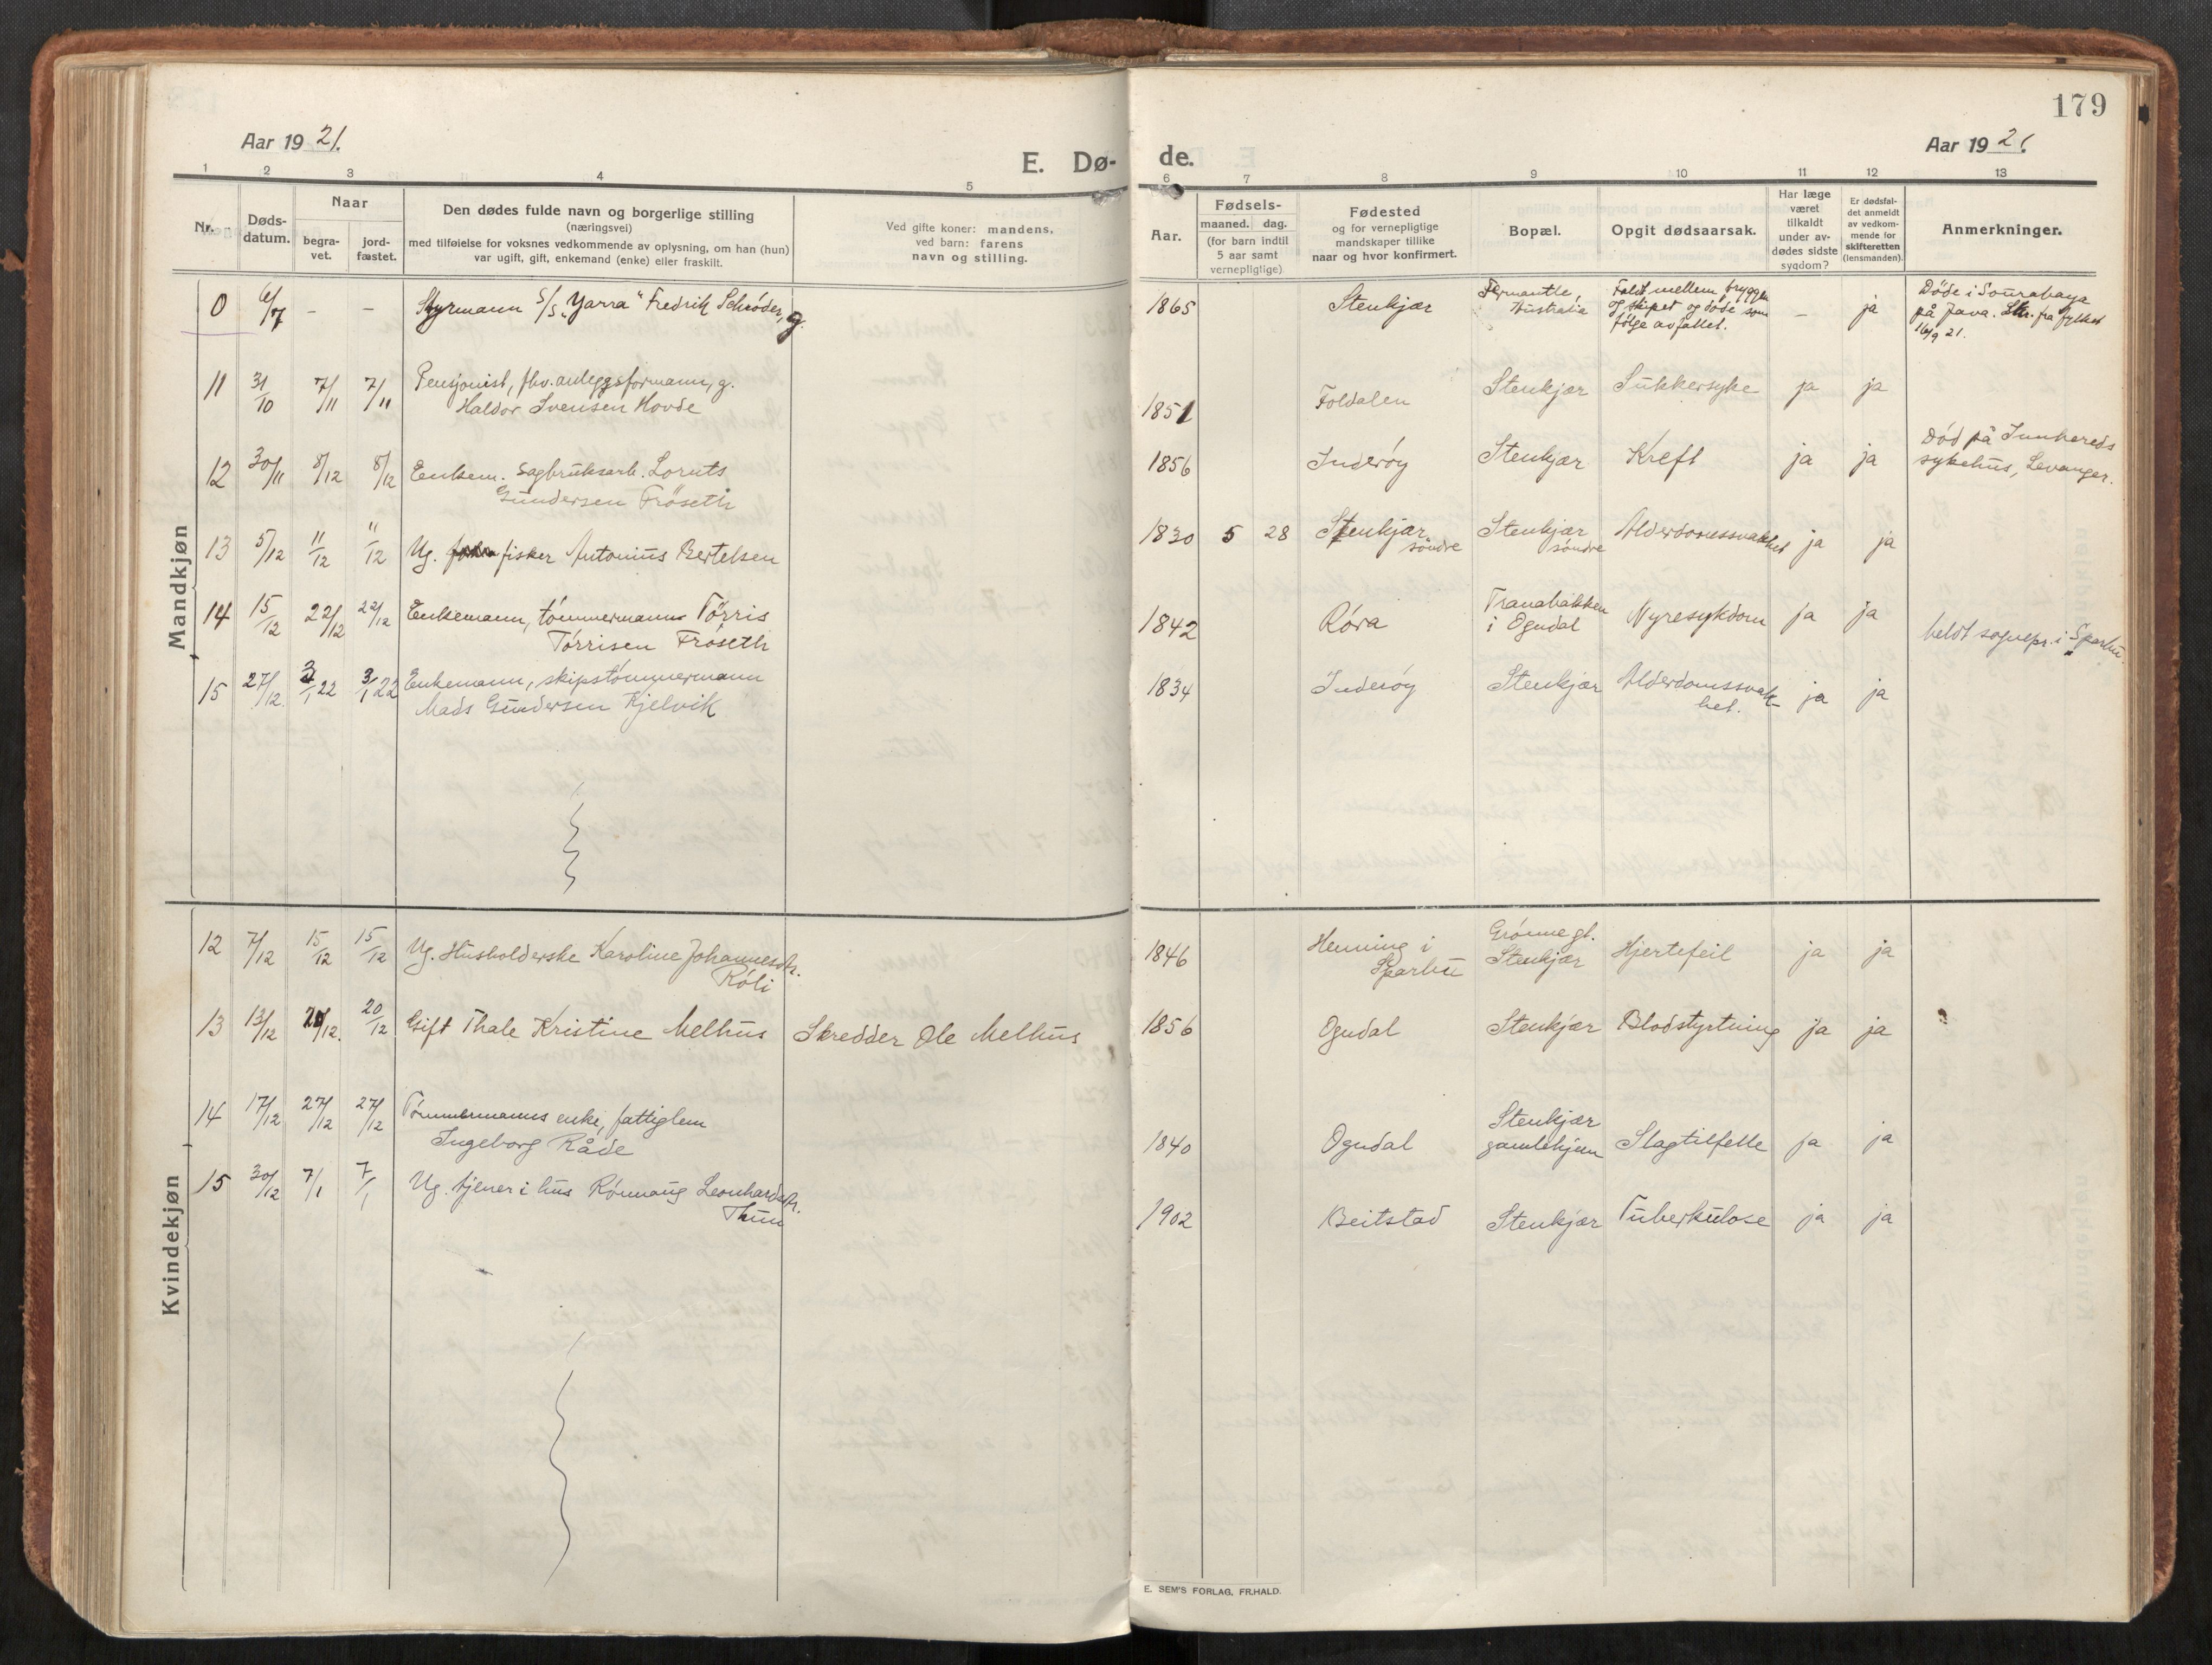 179
Aar 1921.
E. Dø-
de.
Aar 1921.
1 2 3 4 5 6 7 8 9 10 11 12 13
Nr.
Døds-
datum.
Naar
begra-
vet.
jord-
fæstet.
Den dødes fulde navn og borgerlige stilling
(næringsvei)
med tilføielse for voksnes vedkommende av oplysning, om han (hun)
var ugift, gift, enkemand (enke) eller fraskilt.
Ved gifte koner: mandens,
ved barn: farens
navn og stilling.
Aar.
Fødsels-
maaned. dag.
(for barn indtil
5 aar samt
vernepligtige)
Fødested
og for vernepligtige
mandskaper tillike
naar og hvor konfirmert.
Bopæl.
Opgit dødsaarsak.
Har læge
været
tilkaldt
under av-
dødes sidste
sygdom?
Er dødsfal-
det anmeldt
av vedkom-
mende for
skifteretten
(lensmanden).
Anmerkninger.
Mandkjøn
0 6/7 – – Styrmann S/S "Yarra" Fredrik Schrøder, g.
1865 Stenkjær
Fermantle,
Australia
Faldt mellem bryggen
og skipet og døde som
følge av fallet.
– ja
Døde i Sourabaya
på Java. Skr. fra fylket
16/9 21.
11 31/10 7/11 7/11 Pensjonist, fhv. anleggsformann, g.
Haldor Svensen Hovde
1851 Foldalen Stenkjær Sukkersyke ja ja
12 30/11 8/12 8/12 Enkem. Sagbruksarb. Loruts
Gundersen Frøseth
1856 Inderøy Stenkjær Kreft ja ja
Død på Innhereds
sykehus, Levanger.
13 5/12 11/12 11/12 Ug. fisker Antonius Bertelsen
1830 5 28 Stenkjær
søndre
Stenkjær
søndre
Alderdomssvakhet ja ja
14 15/12 22/12 22/12 Enkemann, tømmermann Tørris
Tørrisen Frøseth
1842 Røra
Tranabakken
i Ogndal
Nyresykdom ja ja
heldt sognepr. i Sparbu.
15 27/12. 3/1 22 3/1 22 Enkemann, skipstømmermann
Mads Gundersen Kjelvik
1834 Inderøy Stenkjær Alderdomssvak-
het.
ja ja
Kvindekjøn
12 7/12 15/12 15/12 Ug. Husholderske Karoline Johannesdtr.
Røli
1846 Henning i
Sparbu
Grønnegt.
Stenkjær
Hjertefeil ja ja
13 13/12 20/12. 20/12 Gift Thale Kristine Melhus Skredder Ole Melhus
1856 Ogndal Stenkjær Blodstyrtning ja ja
14 17/12 27/12 27/12 Tømmermanns enke, fattiglem
Ingeborg Råde
1840 Ogndal
Stenkjær
gamlehjem
Slagtilfelle ja ja
15 30/12 7/1 7/1 Ug. tjener i hus Rønnaug Leonhardsdtr.
Thun
1902 Beitstad Stenkjær Tuberkulose ja ja
E. SEM'S FORLAG, FR.HALD.